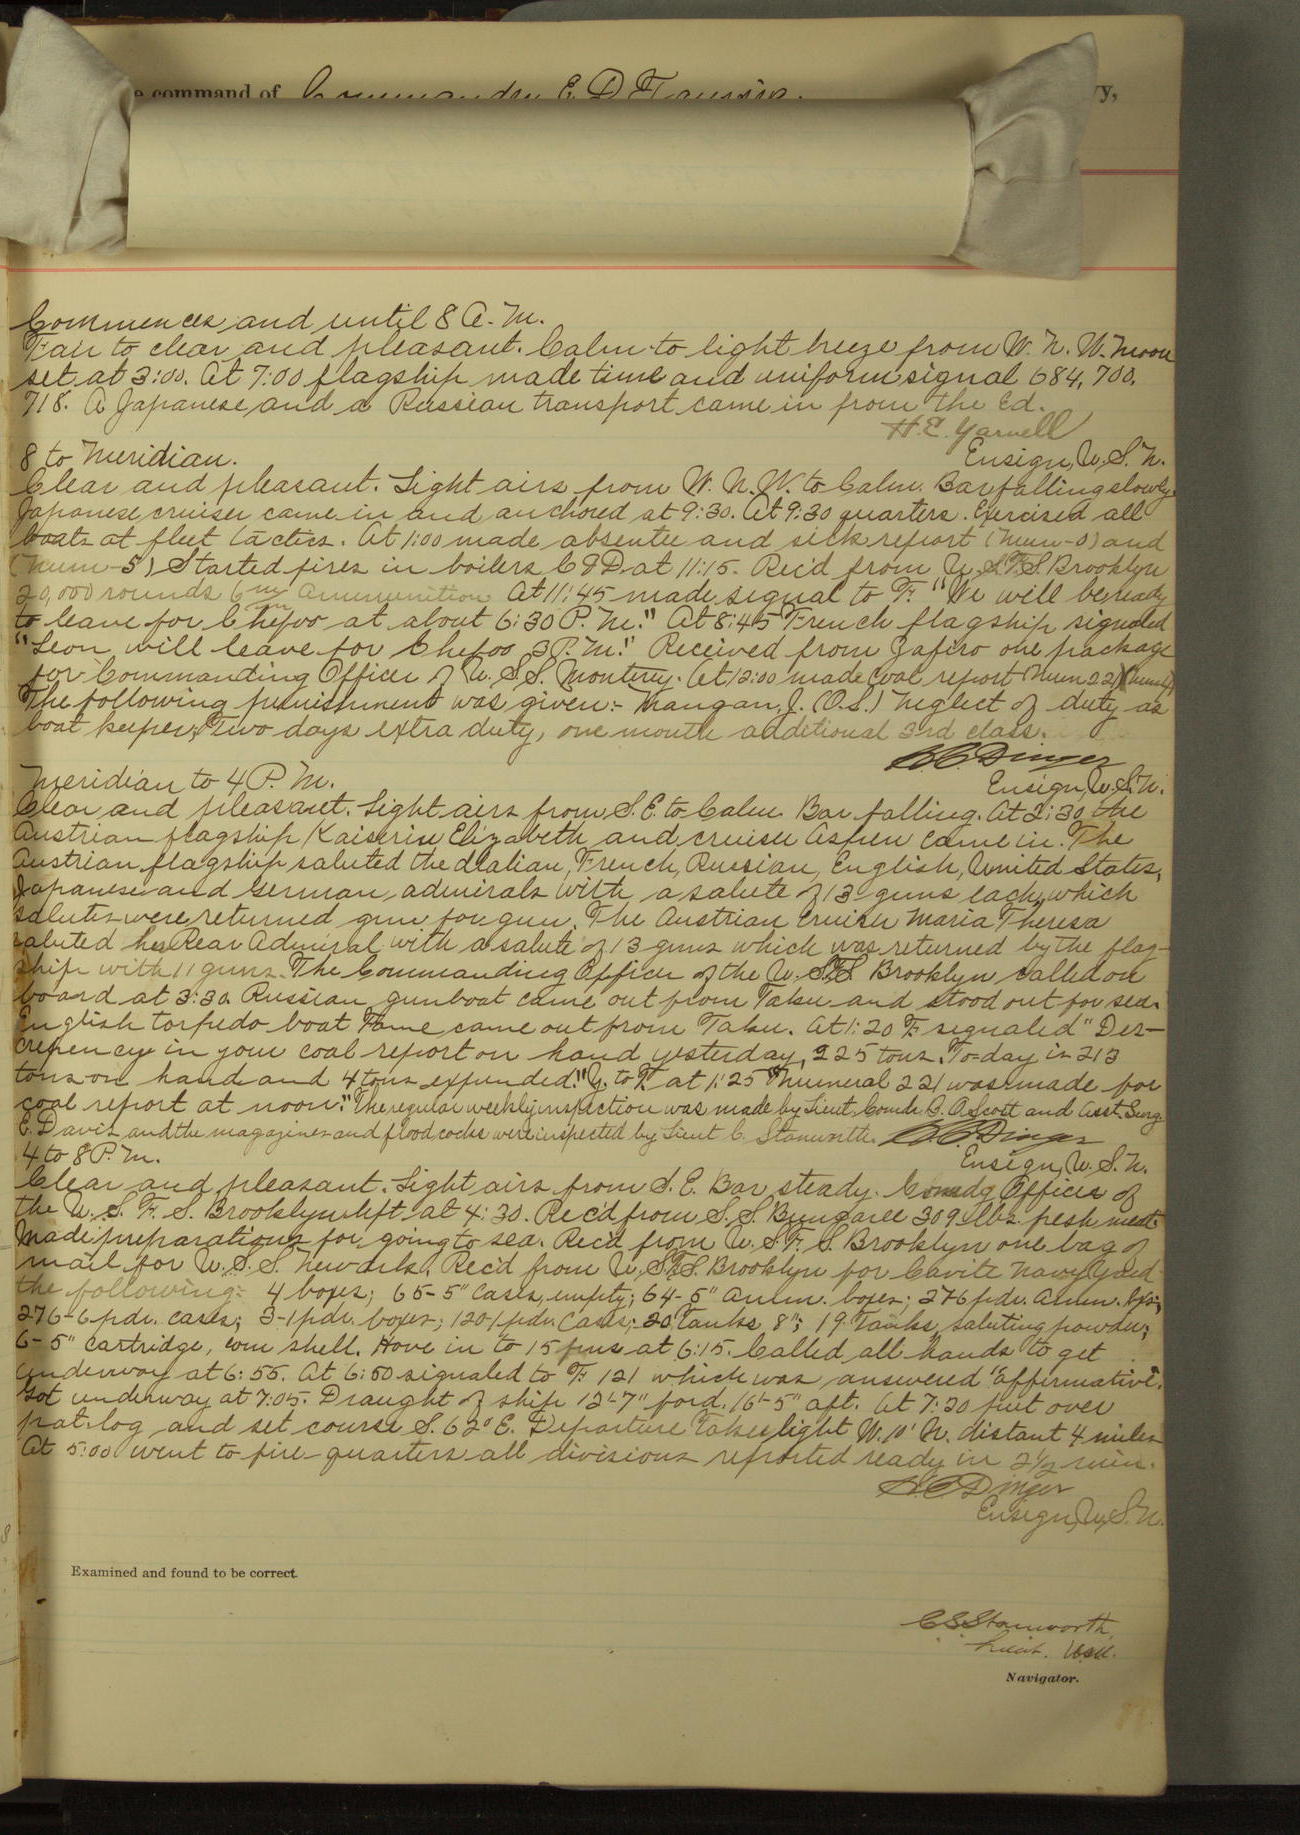 e command of Commander E. D. Taussig. vy,
Commences and until 8 A.M.
Fair to clear and pleasant. Calm to light breeze from W. N. W. Moon
set at 3:00. At 7:00 flagship made time and uniform signal 684, 700,
718. A Japanese and a Russian transport came in from the Ed.
H. E. Yarnell
Ensign, U.S.N.
8 to Meridian.
Clear and pleasant. Light airs from W. N. W. to Calm. Bar falling slowly.
Japanese cruiser came in and anchored at 9:30. At 9:30 quarters. Exercised all
boats at fleet tactics. At 1:00 made absentee and sick report (Num-0) and
(Num-5) Started fires in boilers C & D at 11:15. Rec'd from U.S.F.S. Brooklyn
20,000 rounds 6mm ammunition At 11:45 made signal to F. "We will be ready
to leave for Chefoo at about 6:30 P.M." At 8:45 French flagship signaled
"Leon will leave for Chefoo 3 P.M." Received from Zafiro one package
for Commanding Officer of U.S.S. Monterey. At 12:00 made coal report Num 221
The following punishment was given:- Mangan, J. (O.S.) Neglect of duty as
boat keeper, Two days extra duty, one month additional 3rd class.
H. C. Dinger
Ensign, U.S.N.
Meridian to 4 P.M.
Clear and pleasant. Light airs from S.E. to Calm. Bar falling. At 2:30 the
Austrian flagship Kaiserin Elizabeth and cruiser Aspern came in. The
Austrian flagship saluted the Italian, French, Russian, English, United States,
Japanese and German, admirals with a salute of 13 guns each, which
salutes were returned gun for gun. The Austrian Cruiser Maria Theresa
saluted her Rear Admiral with a salute of 13 guns which was returned by the flag-
ship with 11 guns. The Commanding Officer of the U.S.F.S. Brooklyn called on
board at 3:30. Russian gunboat came out from Taku and stood out for sea.
English torpedo boat Fame came out from Taku. At 1:20 F. signaled "Des-
crepency in your coal report on hand yesterday, 225 tons. To-day is 213
tons on hand and 4 tons expended." Y. to F. at 1:25 "Numeral 221 was made for
coal report at noon." The regular weekly inspection was made by Lieut. Comdr. B. O. Scott and Asst. Surg
E. Davis and the magazines and flood cocks were inspected by Lieut C. Stanworth. H. C. Dinger
Ensign, U.S.N.
4 to 8 P.M.
Clear and pleasant. Light airs from S. E. Bar steady. Comdg Officer of
the U. S. F. S. Brooklyn left at 4:30. Rec'd from S.S. Bungaree 309 lbs. fresh meat.
Made preparations for going to sea. Rec'd from U.S.F.S. Brooklyn one bag of
mail for U.S.S. Newark. Rec'd from U.S.F.S. Brooklyn for Cavite Navy Yard
the following:- 4 boxes; 65-5" Cases, empty; 64-5" Amm. boxes; 27-6 pdr. Amm. bxs;
276-6 pdr. cases; 3-1 pdr. boxes; 120-1 pdr. Cases; 20 Tanks 8"; 19 Tanks, saluting powder;
6-5" cartridge, com shell. Hove in to 15 fms at 6:15. Called all hands to get
underway at 6:55. At 6:50 signaled to F. 121 which was answered "affirmative".
Got underway at 7:05. Draught of ship 12'-7" for'd. 16'-5" aft. At 7:20 put over
pat. log and set course S. 62° E. Departure Taku light W. 10' N. distant 4 miles
At 5:00 went to fire quarters all divisions reported ready in 2½ min.
H. C. Dinger
Ensign, U.S.N.
Examined and found to be correct.
C. S. Stanworth,
Lieut. U.S.N.
Navigator.